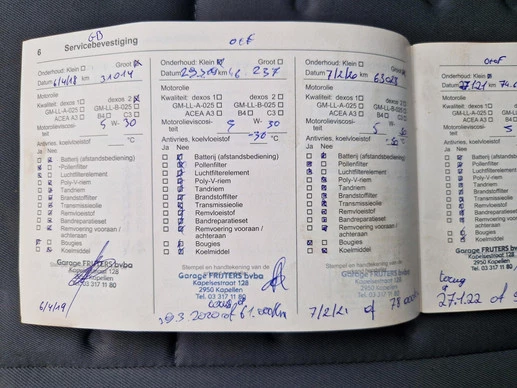 6 Servicebevestiging
GB
Onderhoud: Klein Groot
Datum 6/4/18 km 31014
Motorolie
Kwaliteit: dexos 1 dexos 2
GM-LL-A-025 GM-LL-B-025
ACEA A3 B4 C3
Motorolieviscosi-
teit 5 W- 30
Antivries, koelvloeistof °C
Ja Nee
Batterij (afstandsbediening)
Pollenfilter
Luchtfilterelement
Poly-V-riem
Tandriem
Brandstoffilter
Transmissieolie
Remvloeistof
Bandreparatieset
Remvoering vooraan /
achteraan
Bougies
Koelmiddel
Garage FRUTERS bvba
Kapelsestraat 128
2950 Kapellen
03 317 11 80
6/4/19
Onderhoud: Klein Groot
Datum km 237
Motorolie
Kwaliteit: dexos 1 dexos 2
GM-LL-A-025 GM-LL-B-025
ACEA A3 B4 C3
Motorolieviscosi-
teit 5 W- 30
Antivries, koelvloeistof -30 °C
Ja Nee
Batterij (afstandsbediening)
Pollenfilter
Luchtfilterelement
Poly-V-riem
Tandriem
Brandstoffilter
Transmissieolie
Remvloeistof
Bandreparatieset
Remvoering vooraan /
achteraan
Bougies
Koelmiddel
Stempel en handtekening van de
Garage FRUTERS bvba
Kapelsestraat 128
2950 Kapellen
Tel. 03 317 11 80
2020 of 61.000km
Onderhoud: Klein Groot
Datum 7/2/20 km
Motorolie
Kwaliteit: dexos 1 dexos 2
GM-LL-A-025 GM-LL-B-025
ACEA A3 B4 C3
Motorolieviscosi-
teit 5 W- 30
Antivries, koelvloeistof °C
Ja Nee
Batterij (afstandsbediening)
Pollenfilter
Luchtfilterelement
Poly-V-riem
Tandriem
Brandstoffilter
Transmissieolie
Remvloeistof
Bandreparatieset
Remvoering vooraan /
achteraan
Bougies
Koelmiddel
Stempel en handtekening van de
Garage FRUTERS bvba
Kapelsestraat 128
2950 Kapellen
Tel. 03 317 11 80
7/2/21 of 78 000
Onderhoud: Klein
km
Motorolie
Kwaliteit: dexos 1
GM-LL-A-025
ACEA A3
Motorolieviscosi-
teit 5
Antivries, koelvloeistof
Ja Nee
Batterij
Pollenfilter
Luchtfilterelement
Poly-V-riem
Tandriem
Brandstoffilter
Transmissieolie
Remvloeistof
Bandreparatieset
Remvoering
achteraan
Bougies
Koelmiddel
27.1.22 of